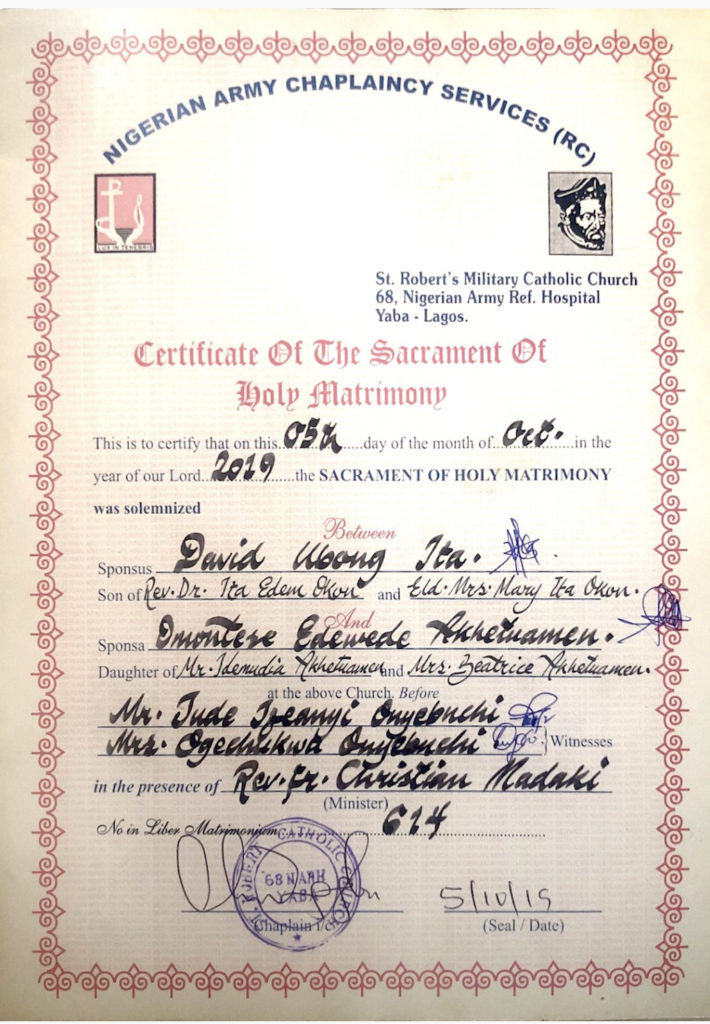 NIGERIAN ARMY CHAPLAINCY SERVICES (RC)
LUX IN TENEBRIS
St. Robert's Military Catholic Church
68, Nigerian Army Ref. Hospital
Yaba - Lagos.
Certificate Of The Sacrament Of
Holy Matrimony
This is to certify that on this 05th day of the month of Oct. in the
year of our Lord 2019 the SACRAMENT OF HOLY MATRIMONY
was solemnized
Between
Sponsus David Ubong Ita.
Son of Rev. Dr. Ita Edem Okon and Eld. Mrs. Mary Ita Okon.
And
Sponsa Omontese Edewede Akhetuamen.
Daughter of Mr. Idemudia Akhetuamen and Mrs. Beatrice Akhetuamen.
at the above Church. Before
Mr. Jude Ifeanyi Onyebuchi
Mrs. Ogechukwu Onyebuchi } Witnesses
in the presence of Rev. Fr. Christian Madaki
(Minister)
No in Liber Matrimonium 614
CATHOLIC CHURCH
68 NARH
YABA
5/10/19
Chaplain i/c
(Seal / Date)